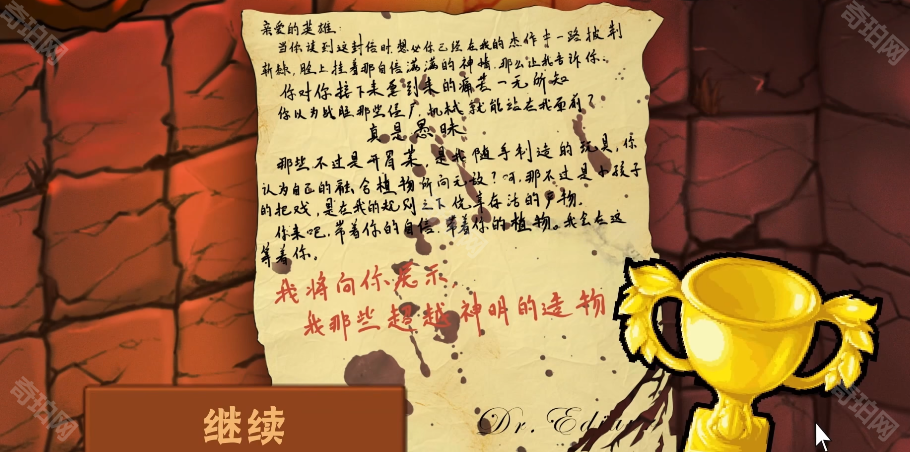 亲爱的英雄:
当你读到这封信时想必你已经在我的杰作中一路披荆
斩棘,脸上挂着那自信满满的神情,那么让我告诉你:
你对你接下来要到来的痛苦一无所知
你以为战胜那些僵尸,机械就能站在我面前?
真是愚昧
那些不过是开胃菜,是我随手制造的玩具,你
认为自己的融合植物所向无敌?呵,那不过是小孩子
的把戏,是在我的规则之下优幸存活的产物.
你来吧,带着你的自信,带着你的植物。我会在这
等着你。
我将向你展示,
我那些超越神明的造物
Dr.
继续
奇珀网
奇珀网
奇珀网
奇珀网
奇珀网